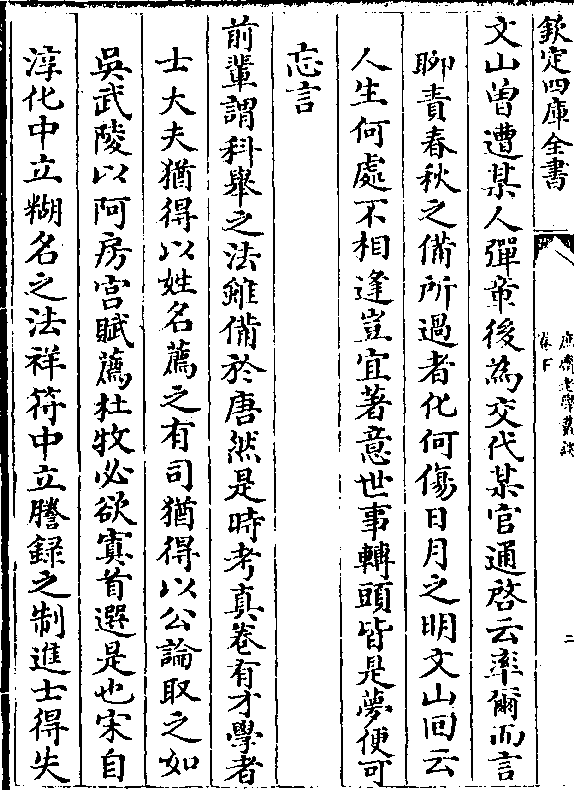 欽定四庫全書
庶齋老學叢談
卷下
二
文山曽遭某人彈章後為交代某官通啓云率爾而言
聊責春秋之備所過者化何傷日月之明文山回云
人生何處不相逢豈宜著意世事轉頭皆是夢便可
忘言
前輩謂科舉之法雖備於唐然是時考真卷有才學者
士大夫猶得以姓名薦之有司猶得以公論取之如
吳武陵以阿房宫賦薦杜牧必欲寘首選是也宋自
淳化中立糊名之法祥符中立謄録之制進士得失